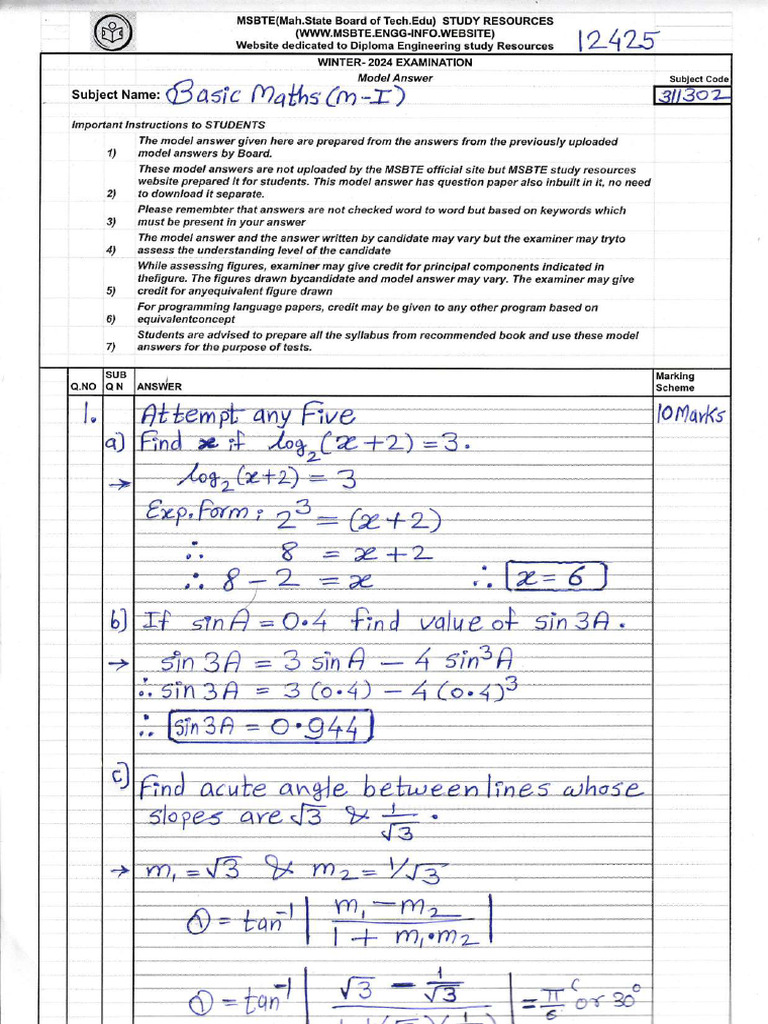 MSBTE(Mah.State Board of Tech.Edu) STUDY RESOURCES
(WWW.MSBTE.ENGG-INFO.WEBSITE)
Website dedicated to Diploma Engineering study Resources
12425
WINTER- 2024 EXAMINATION
Model Answer
Subject Code
Subject Name: Basic Maths (M-I)
311302
Important Instructions to STUDENTS
1) The model answer given here are prepared from the answers from the previously uploaded
model answers by Board.
These model answers are not uploaded by the MSBTE official site but MSBTE study resources
website prepared it for students. This model answer has question paper also inbuilt in it, no need
2) to download it separate.
Please remembter that answers are not checked word to word but based on keywords which
3) must be present in your answer
The model answer and the answer written by candidate may vary but the examiner may tryto
4) assess the understanding level of the candidate
While assessing figures, examiner may give credit for principal components indicated in
thefigure. The figures drawn bycandidate and model answer may vary. The examiner may give
5) credit for anyequivalent figure drawn
For programming language papers, credit may be given to any other program based on
6) equivalentconcept
Students are advised to prepare all the syllabus from recommended book and use these model
7) answers for the purpose of tests.
Q.NO SUB Q N ANSWER Marking Scheme
1. Attempt any Five 10Marks
a) Find x if log₂(x+2) = 3.
→ log₂(x+2) = 3
Exp. Form : 2³ = (x+2)
∴ 8 = x+2
∴ 8 − 2 = x ∴ x = 6
b) If sin A = 0.4 find value of sin 3A.
→ sin 3A = 3 sin A − 4 sin³A
∴ sin 3A = 3 (0.4) − 4 (0.4)³
∴ sin 3A = 0.944
c) Find acute angle between lines whose
slopes are √3 & 1/√3.
→ m₁ = √3 & m₂ = 1/√3
θ = tan⁻¹ | (m₁ − m₂) / (1 + m₁·m₂) |
θ = tan⁻¹ | √3 − 1/√3 | = π/6 ᶜ or 30°